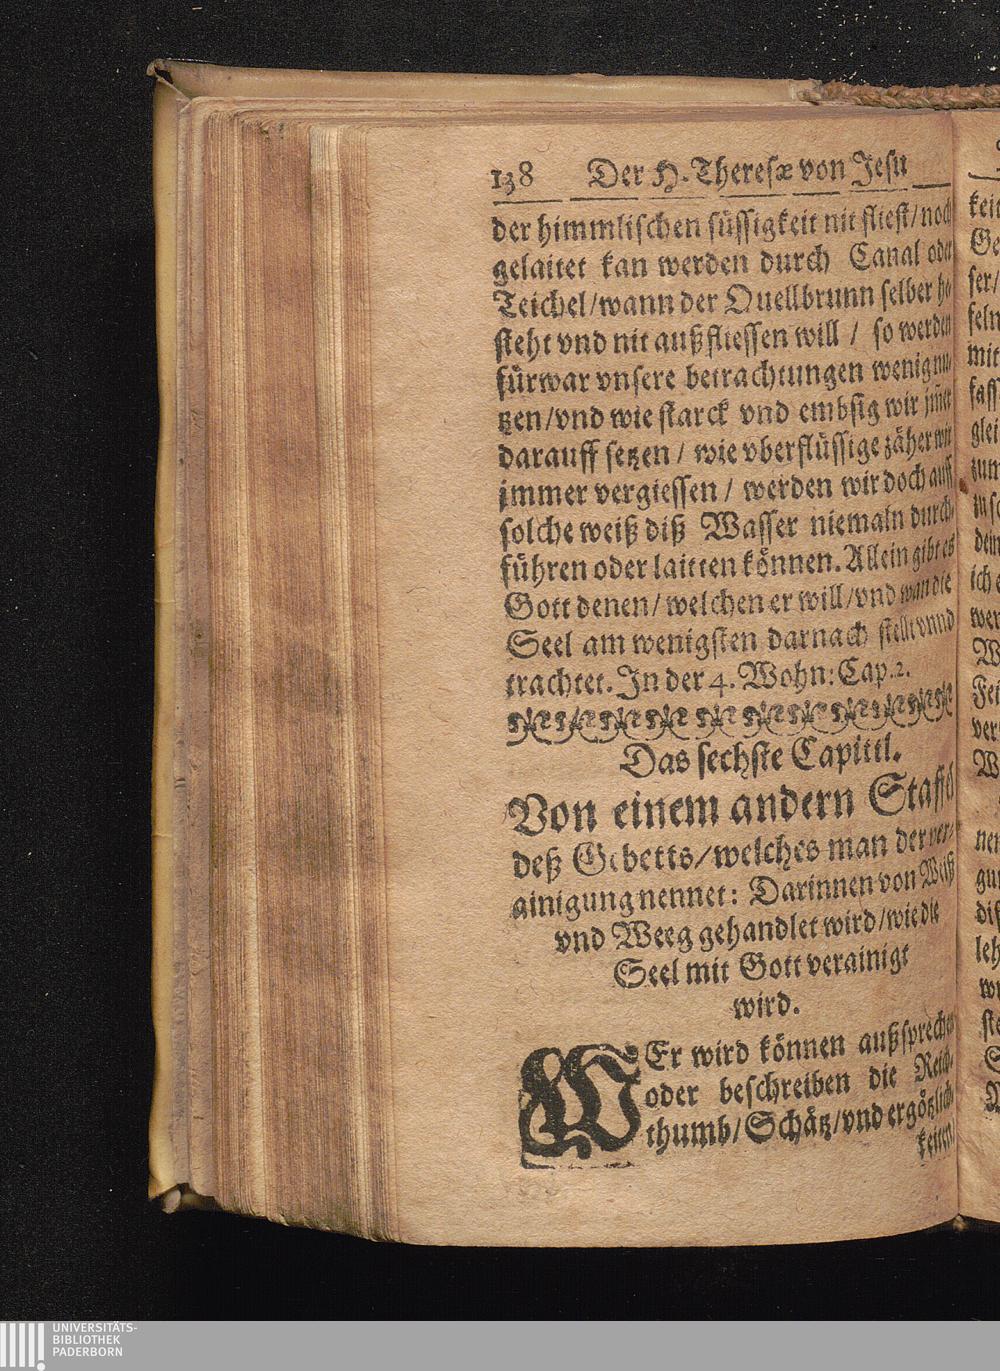 138 Der H. Theresæ von Jesu
der himmlischen süssigkeit nit fliest/noch
gelaitet kan werden durch Canal oder
Teichel/wann der Quellbrunn selber be-
steht vnd nit außfliessen will / so werden
fürwar vnsere betrachtungen wenig nu-
tzen/vnd wie starck vnd embsig wir jm̃er
darauff setzen / wie vberflüssige zäher wir
jmmer vergiessen / werden wir doch auff
solche weiß diß Wasser niemaln durch-
führen oder laitten können. Allein gibt es
Gott denen/welchen er will/vnd wan die
Seel am wenigsten darnach stellt vnnd
trachtet. In der 4. Wohn: Cap. 2.
Das sechste Capittl.
Von einem andern Staffel
deß Gebetts/welches man der ver-
ainigung nennet: Darinnen von Weiß
vnd Weeg gehandlet wird/wie die
Seel mit Gott verainigt
wird.
WEr wird können außsprechen
oder beschreiben die Reich-
thumb/Schätz/vnd ergötzlich-
keiten
UNIVERSITÄTS-
BIBLIOTHEK
PADERBORN